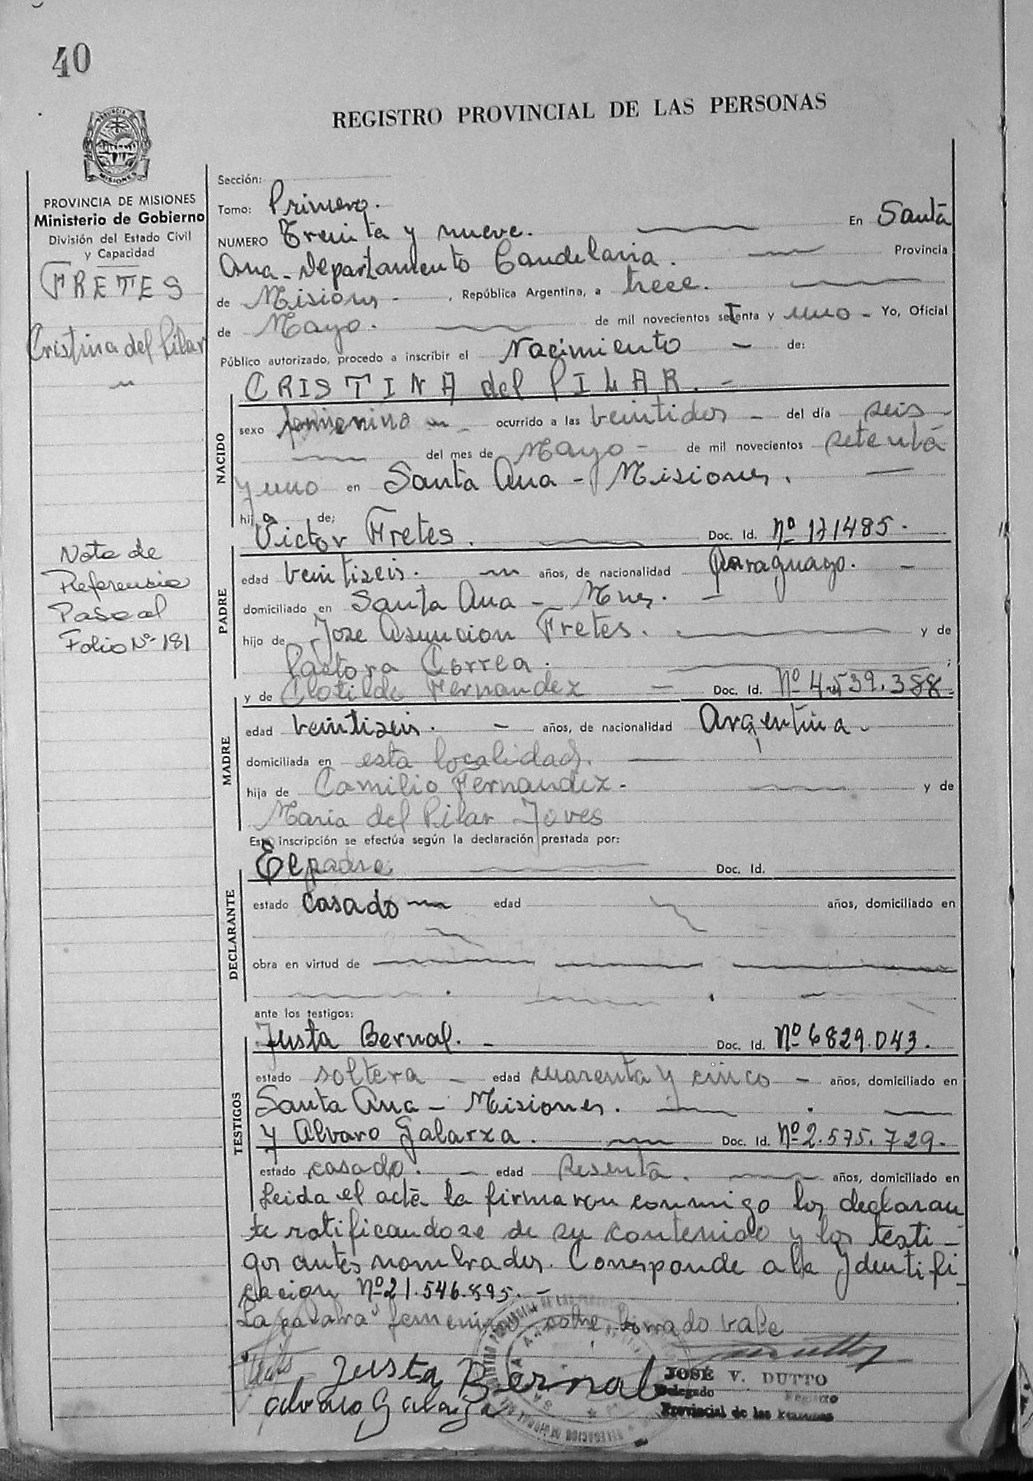 40
REGISTRO PROVINCIAL DE LAS PERSONAS
PROVINCIA DE MISIONES
Ministerio de Gobierno
División del Estado Civil
y Capacidad
FRETES
Cristina del Pilar
Nota de
Referencia
Pasa al
Folio Nº 181
Sección:
Tomo: Primero.
NUMERO Treinta y nueve. En Santa
Ana - Departamento Candelaria. Provincia
de Misiones - , República Argentina, a trece.
de Mayo. de mil novecientos setenta y uno - Yo, Oficial
Público autorizado, procedo a inscribir el Nacimiento - de:
CRISTINA del PILAR. -
NACIDO
sexo femenino ocurrido a las veintidos - del día seis -
del mes de Mayo - de mil novecientos setenta
y uno en Santa Ana - Misiones.
hija de:
Victor Fretes. Doc. Id. Nº 171485.
PADRE
edad veintiseis. años, de nacionalidad Paraguayo. -
domiciliado en Santa Ana - Mnes. -
hijo de Jose Asuncion Fretes. y de
Pastora Correa. ;
y de Clotilde Fernandez - Doc. Id. Nº 4.539.388.
MADRE
edad veintiseis. - años, de nacionalidad Argentina.
domiciliada en esta localidad.
hija de Camilio Fernandez. y de
Maria del Pilar Joves
Esta inscripción se efectúa según la declaración prestada por:
El padre Doc. Id.
DECLARANTE
estado casado edad años, domiciliado en
obra en virtud de
ante los testigos:
Justa Bernal. - Doc. Id. Nº 6829.043.
TESTIGOS
estado soltera - edad cuarenta y cinco - años, domiciliado en
Santa Ana - Misiones.
y Alvaro Galarza. Doc. Id. Nº 2.575.729.
estado casado. - edad sesenta. años, domiciliado en
Leida el acta la firmaron conmigo los declaran
te ratificandose de su contenido y los testi-
gos antes nombrados. Corresponde a la Identifi-
cacion Nº 21.546.895. -
La palabra "femenino" sobre borrado vale
Justa Bernal
Alvaro Galarza
JOSÉ V. DUTTO
Delegado Registro
Provincial de las Personas